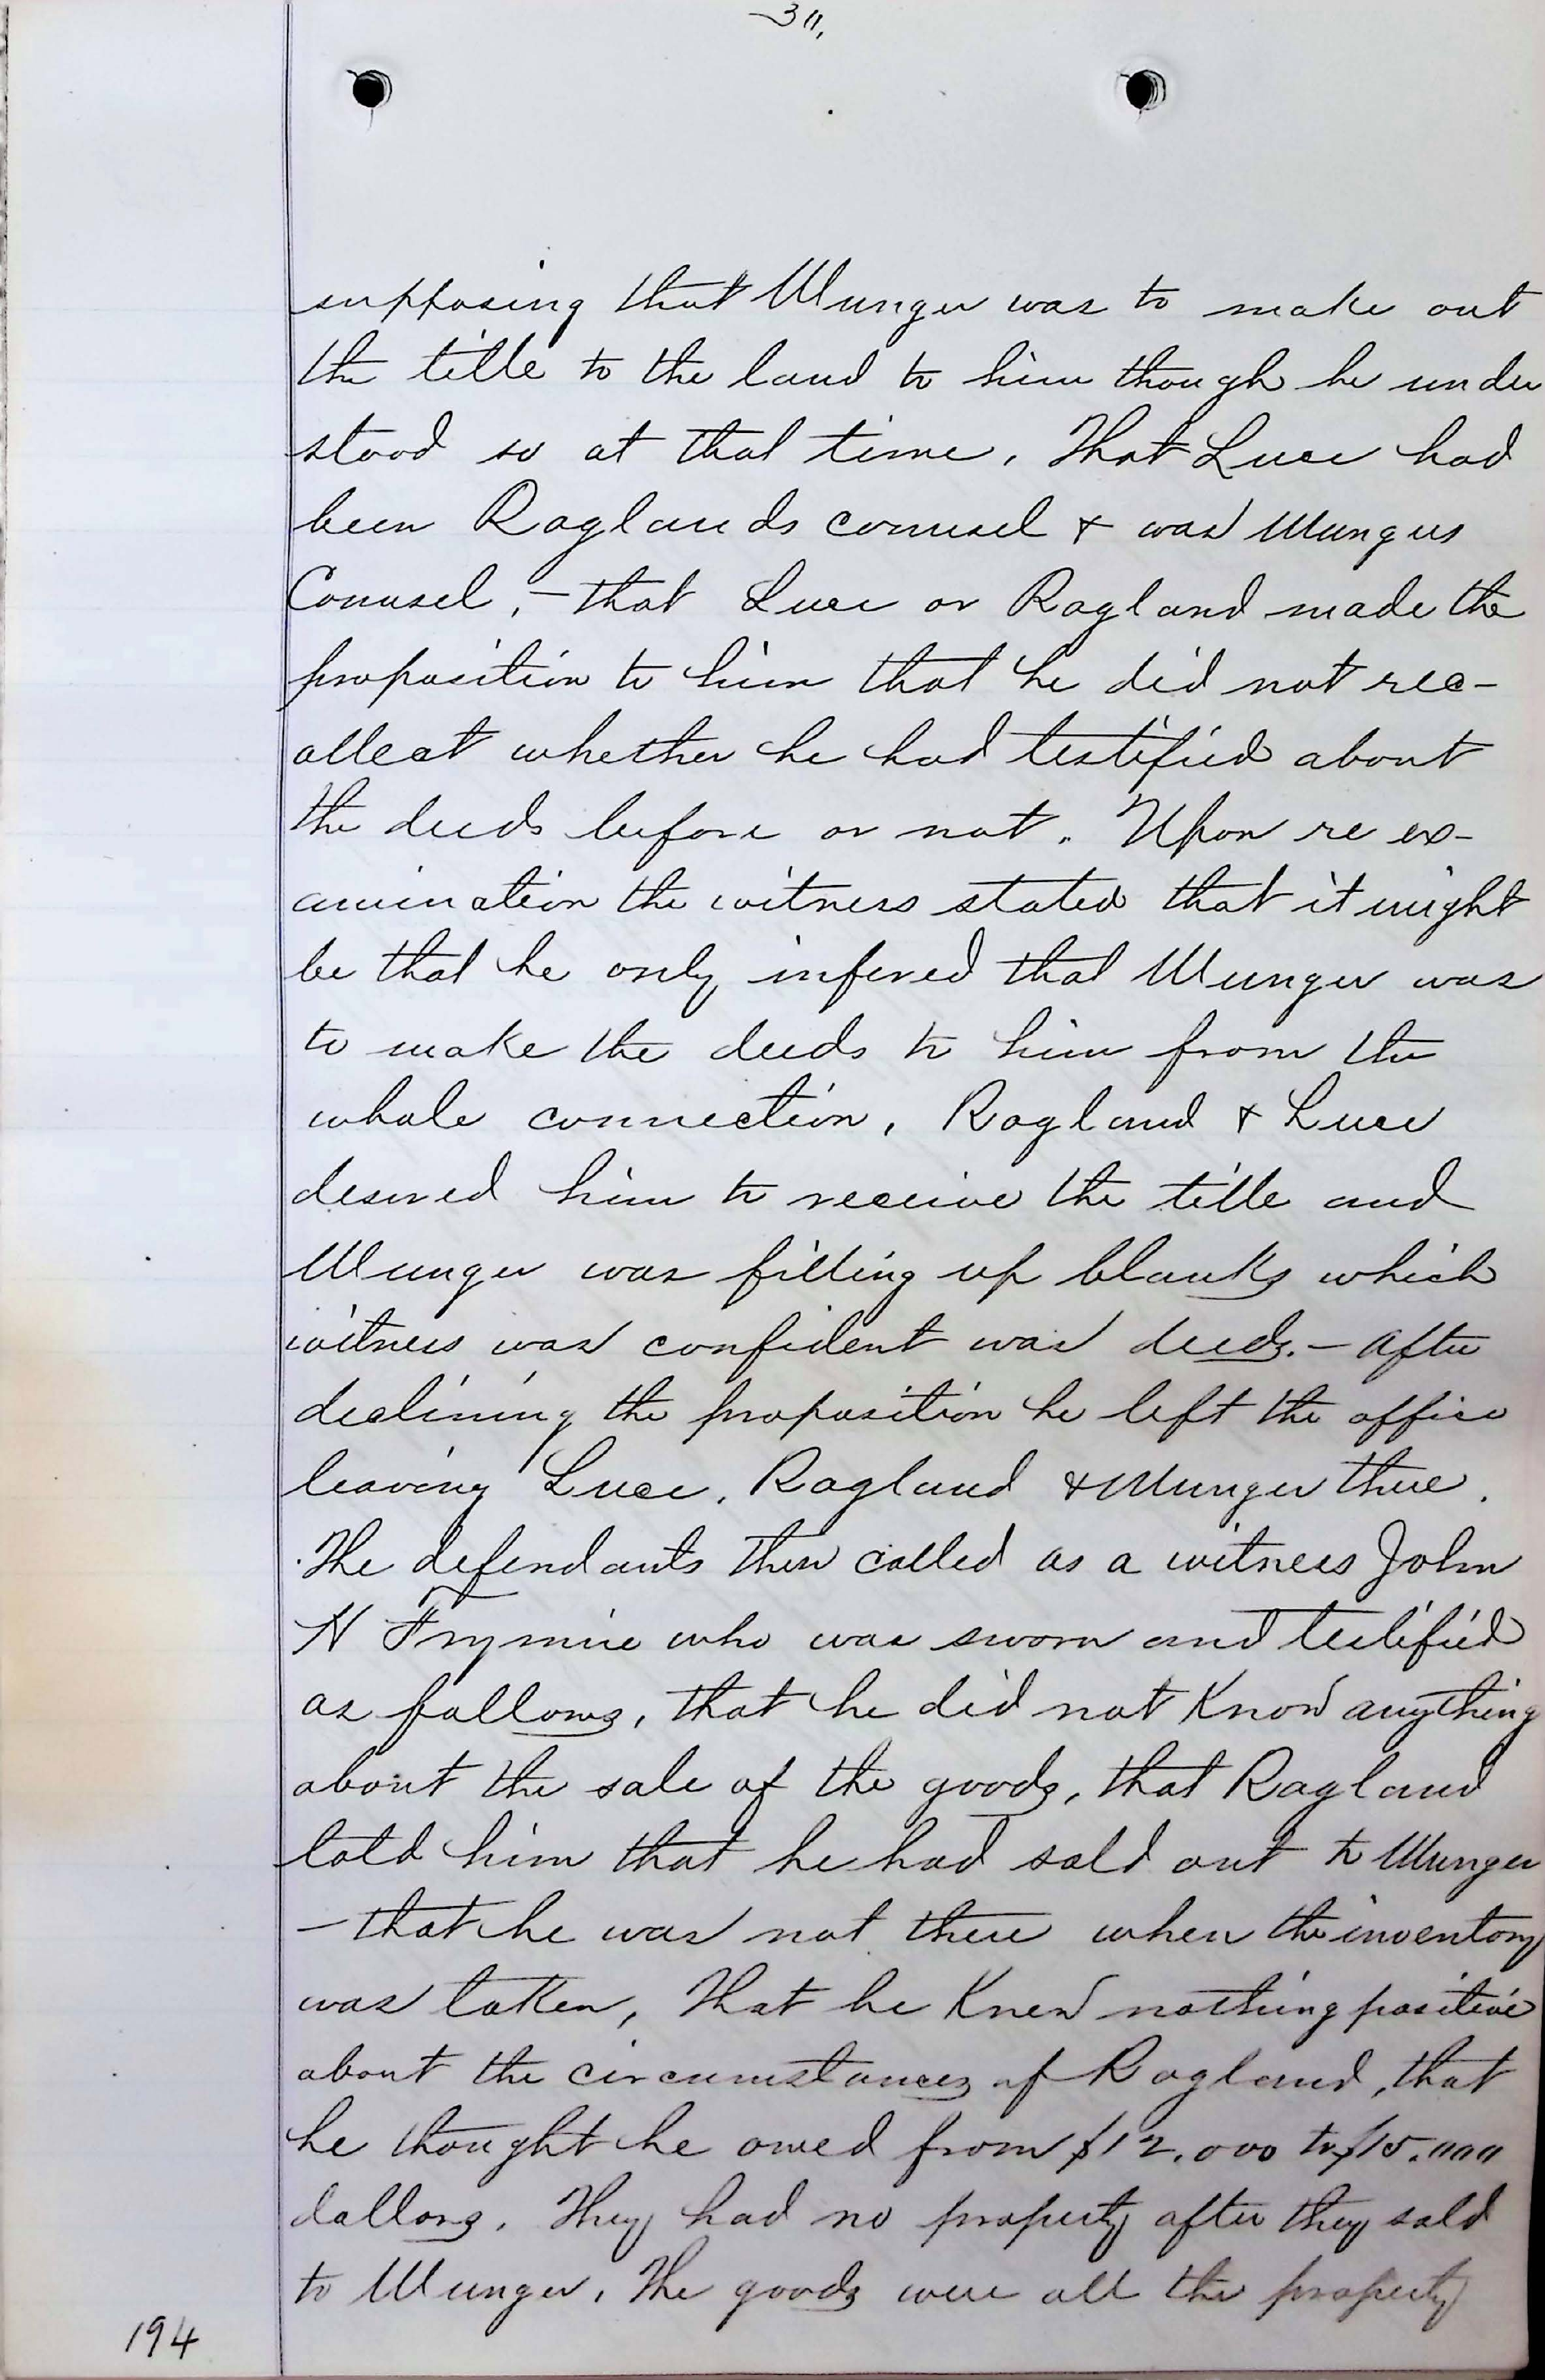 30,
supposing that Munger was to make out
the title to the land to him though he under
stood so at that time, That Luce had
been Raglands counsel & was Mungers
Counsel, - that Luce or Ragland made the
proposition to him that he did not rec-
ollect whether he had testified about
the deeds before or not. Upon re ex-
amination the witness stated that it might
be that he only infered that Munger was
to make the deeds to him from the
whole connection, Ragland & Luce
desired him to receive the title and
Munger was filling up blanks which
witness was confident was deeds. - after
declining the proposition he left the office
leaving Luce, Ragland & Munger there.
The defendants then called as a witness John
N who was sworn and testified
as follows, that he did not Know anything
about the sale of the goods, that Ragland
told him that he had sold out to Munger
- that he was not there when the inventory
was taken, That he Knew nothing positive
about the circumstances of Ragland, that
he thought he owed from $12,000 to $15,000
dollars. They had no property after they sold
to Munger, The goods were all the property
194